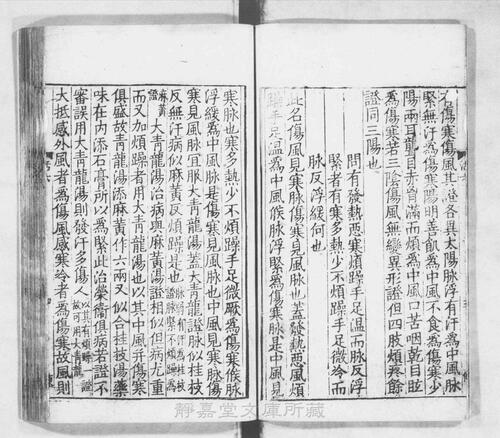 名傷寒傷風其證各異太陽脉浮有汗為中風脉
緊無汗為傷寒陽明善飢為中風不食為傷寒少
陽兩耳聾目赤胷滿而煩為中風口苦咽乾目眩
為傷寒若三陰傷風無變異形證但四肢煩疼餘
證同三陽也
問有發熱惡寒煩躁手足温而脉反浮
緊者有寒多熱少不煩躁手足微冷而
脉反浮緩何也
此名傷風見寒脉傷寒見風脉也蓋發熱惡風煩
躁手足温為中風候脉浮緊為傷寒脉是中風見
寒脉也寒多熱少不煩躁手足微厥為傷寒候脉
浮緩為中風脉是傷寒見風脉也中風見寒脉傷
寒見風脉宜服大青龍湯蓋大青龍證脉似桂枝
反無汗病似麻黃反煩躁是也脉弱有汗為桂枝證脉緊不煩躁為
麻黃證大青龍湯治病與麻黃湯證相似但病尤重
而又加煩躁者用大青龍湯也以其中風并傷寒
俱盛故青龍湯添麻黃作六兩又似合桂枝湯藥
味在内添石膏所以為緊此治榮衞俱病若證不
審誤用大青龍湯則發汗多傷人以其有煩躁一證故可用大青龍
大抵感外風者為傷風感寒冷者為傷寒故風則
靜嘉堂文庫所藏